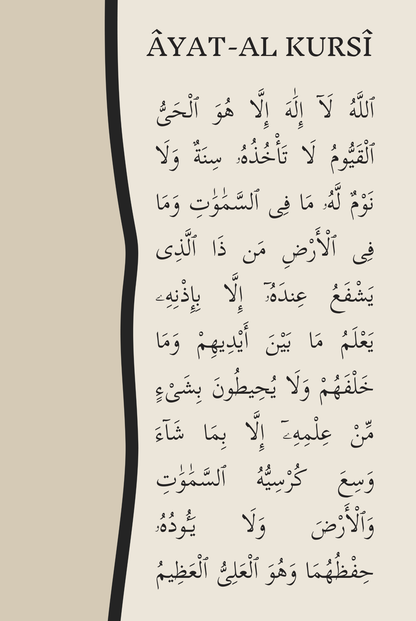 ÂYAT-AL KURSÎ
ٱللَّهُ لَآ إِلَٰهَ إِلَّا هُوَ ٱلْحَىُّ
ٱلْقَيُّومُ لَا تَأْخُذُهُۥ سِنَةٌ وَلَا
نَوْمٌ لَّهُۥ مَا فِى ٱلسَّمَٰوَٰتِ وَمَا
فِى ٱلْأَرْضِ مَن ذَا ٱلَّذِى
يَشْفَعُ عِندَهُۥٓ إِلَّا بِإِذْنِهِۦ
يَعْلَمُ مَا بَيْنَ أَيْدِيهِمْ وَمَا
خَلْفَهُمْ وَلَا يُحِيطُونَ بِشَىْءٍ
مِّنْ عِلْمِهِۦٓ إِلَّا بِمَا شَآءَ
وَسِعَ كُرْسِيُّهُ ٱلسَّمَٰوَٰتِ
وَٱلْأَرْضَ وَلَا يَـُٔودُهُۥ
حِفْظُهُمَا وَهُوَ ٱلْعَلِىُّ ٱلْعَظِيمُ